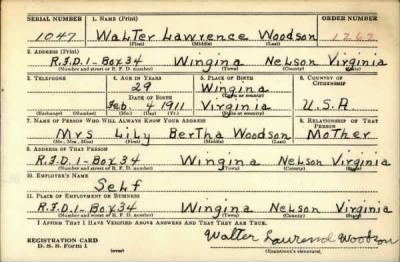 SERIAL NUMBER 1. NAME (Print) ORDER NUMBER
1047 Walter Lawrence Woodson 1262
(First) (Middle) (Last)
2. ADDRESS (Print)
R.F.D.1-Box 34 Wingina Nelson Virginia
(Number and street or R. F. D. number) (Town) (County) (State)
3. TELEPHONE 4. AGE IN YEARS 5. PLACE OF BIRTH 6. COUNTRY OF CITIZENSHIP
29 Wingina
DATE OF BIRTH (Town or county)
Feb. 4 1911 Virginia U.S.A
(Exchange) (Number) (Mo.) (Day) (Yr.) (State or country)
7. NAME OF PERSON WHO WILL ALWAYS KNOW YOUR ADDRESS 8. RELATIONSHIP OF THAT PERSON
Mrs Lily Bertha Woodson Mother
(Mr., Mrs., Miss) (First) (Middle) (Last)
9. ADDRESS OF THAT PERSON
R.F.D.1-Box 34 Wingina Nelson Virginia
(Number and street or R. F. D. number) (Town) (County) (State)
10. EMPLOYER'S NAME
Self
11. PLACE OF EMPLOYMENT OR BUSINESS
R.F.D.1-Box 34 Wingina Nelson Virginia
(Number and street or R. F. D. number) (Town) (County) (State)
I AFFIRM THAT I HAVE VERIFIED ABOVE ANSWERS AND THAT THEY ARE TRUE.
REGISTRATION CARD Walter Lawrence Woodson
D. S. S. Form 1 (over) (Registrant's signature)